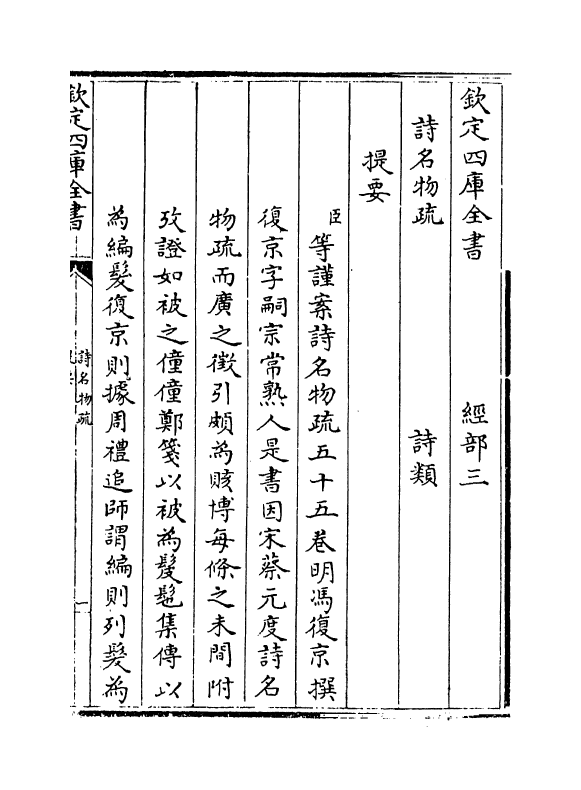 欽定四庫全書　　　　　經部三
詩名物疏　　　　　　　詩類
提要
臣等謹案詩名物疏五十五卷明馮復京撰
復京字嗣宗常熟人是書因宋蔡元度詩名
物疏而廣之徵引頗為賅博每條之末間附
攷證如被之僮僮鄭箋以被為髲髢集傳以
為編髮復京則據周禮追師謂編則列髮為
欽定四庫全書
詩名物疏
一